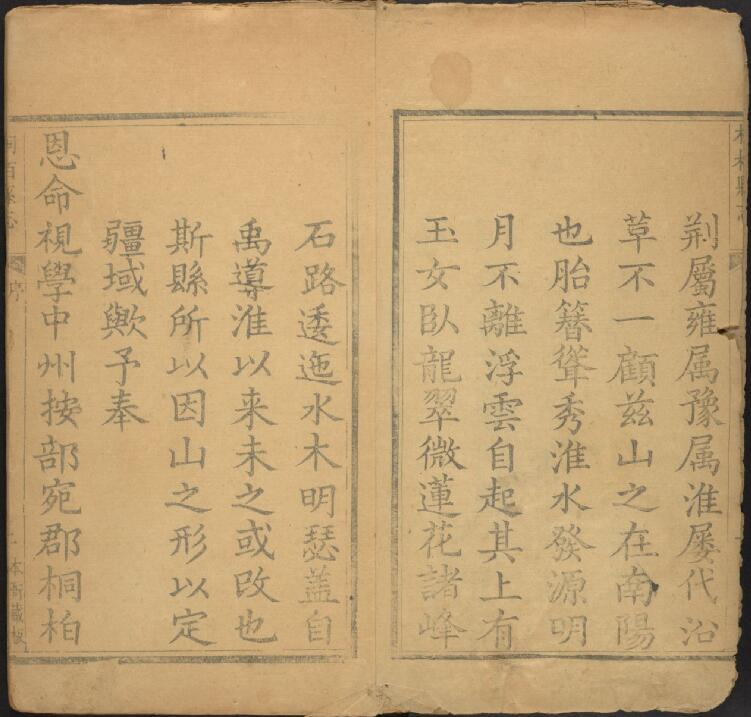 荆屬雍属豫属淮屡代沿
草不一顧茲山之在南陽
也胎簪聳秀淮水發源明
月不離浮雲自起其上有
玉女臥龍翠微蓮花諸峰
石路逶迤水木明瑟盖自
禹導淮以来未之或改也
斯縣所以因山之形以定
疆域歟予奉
恩命視學中州按部宛郡桐柏
序
本衙藏板